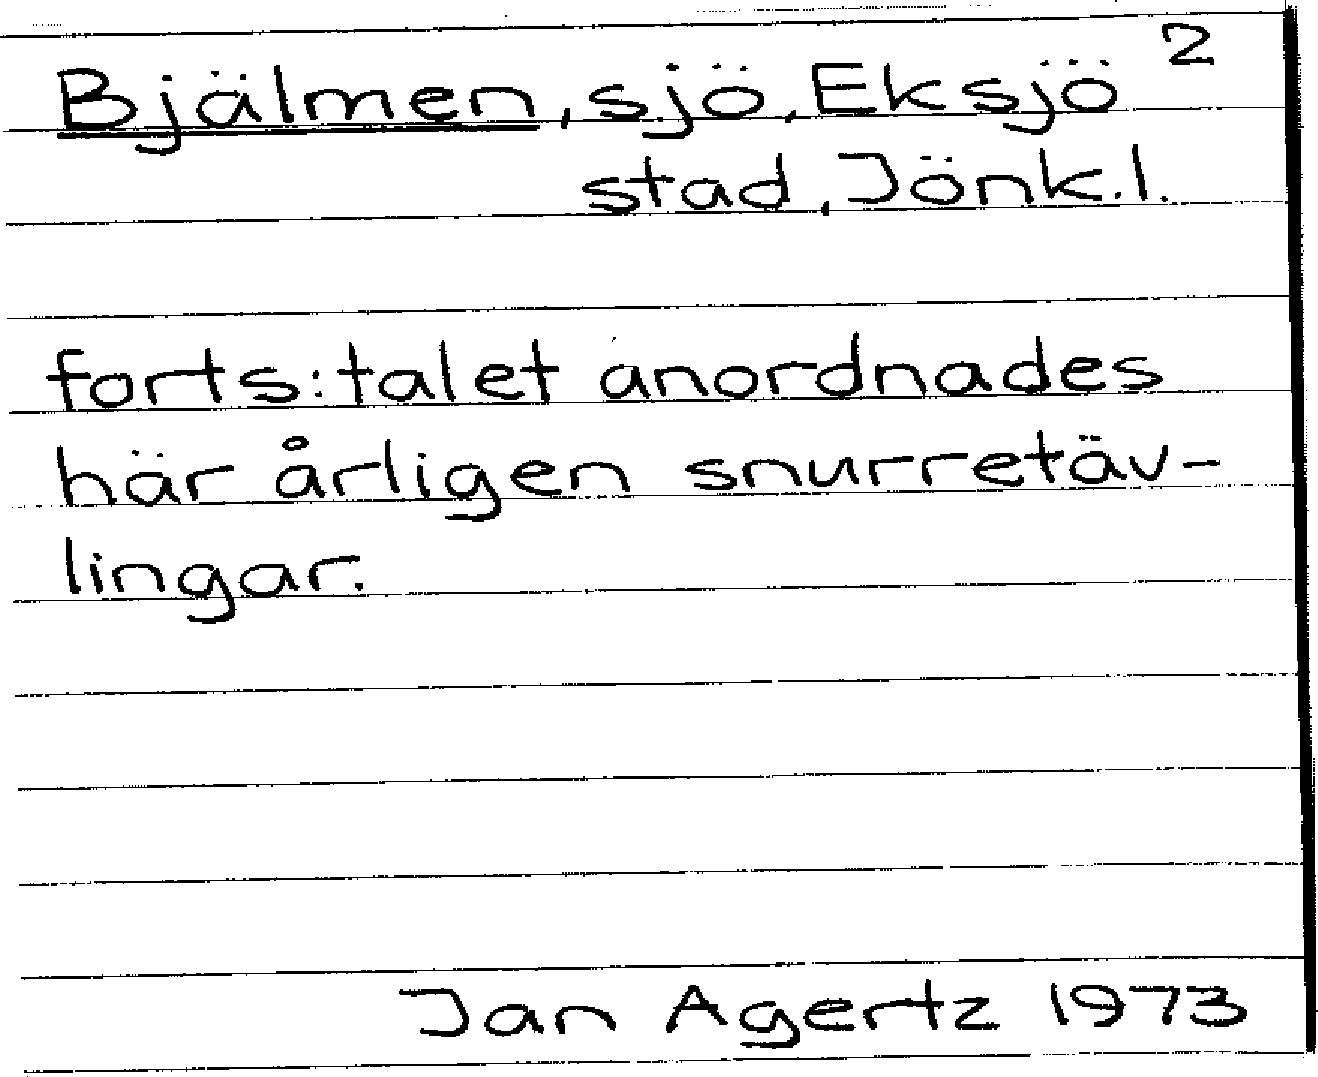 2
Bjälmen, sjö, Eksjö
stad, Jönk.l.
forts: talet anordnades
här årligen snurretäv-
lingar.
Jan Agertz 1973